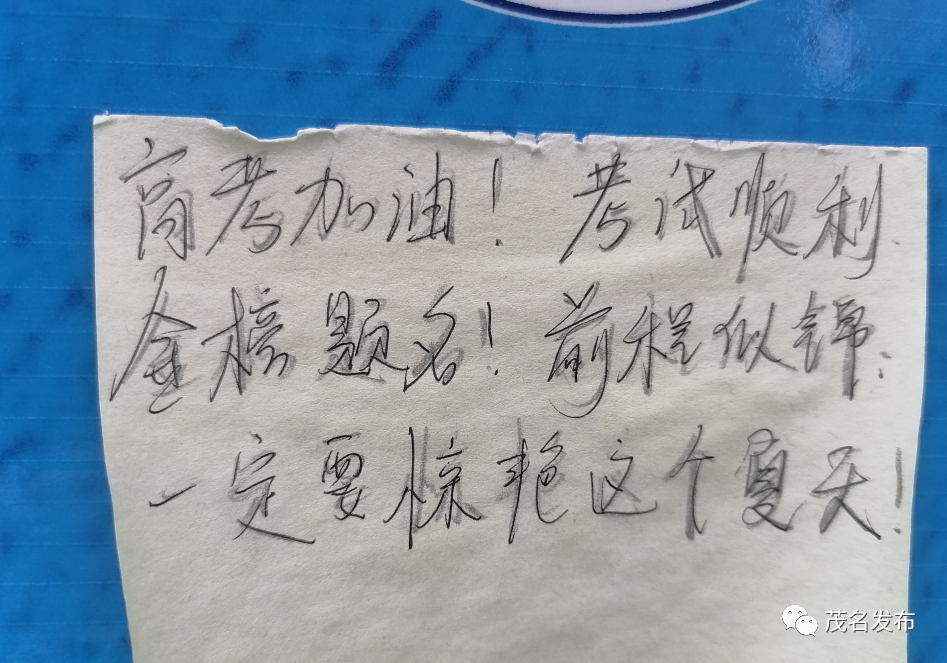 高考加油！考试顺利、
金榜题名！前程似锦、
一定要惊艳这个夏天！
茂名发布